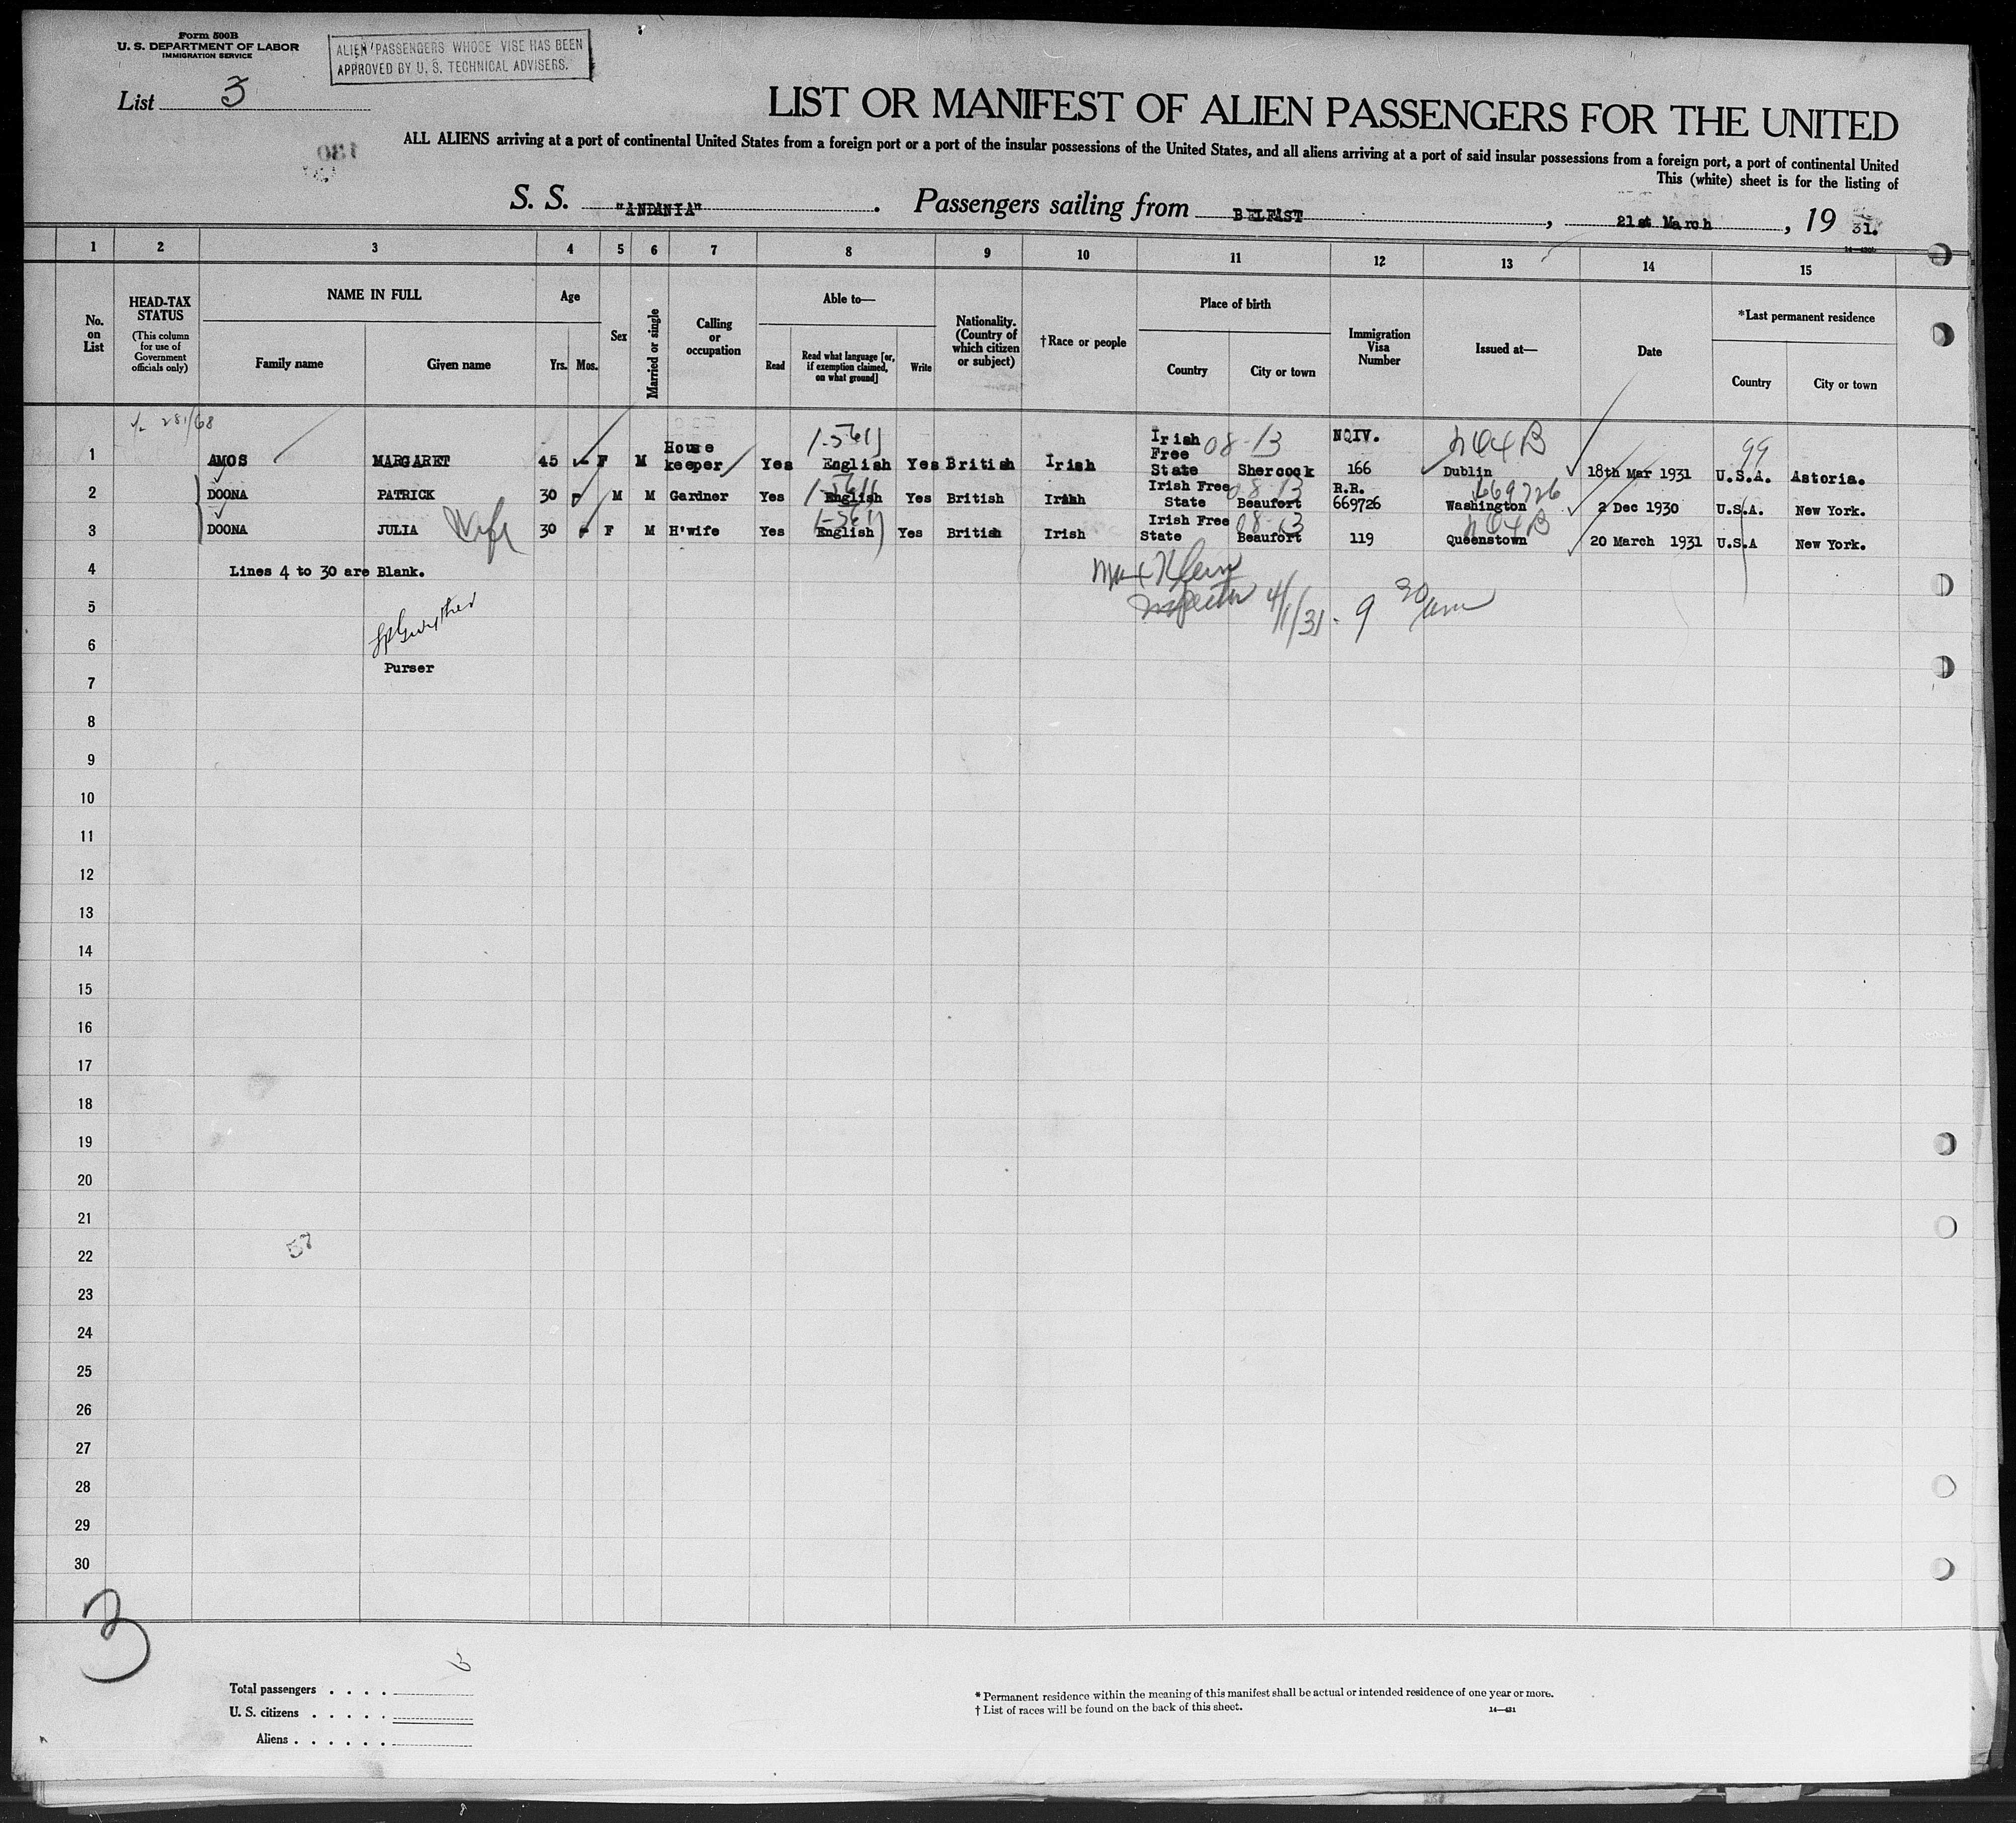 Form 500B
U. S. DEPARTMENT OF LABOR
IMMIGRATION SERVICE
ALIEN PASSENGERS WHOSE VISE HAS BEEN
APPROVED BY U. S. TECHNICAL ADVISERS.
List 3
LIST OR MANIFEST OF ALIEN PASSENGERS FOR THE UNITED
ALL ALIENS arriving at a port of continental United States from a foreign port or a port of the insular possessions of the United States, and all aliens arriving at a port of said insular possessions from a foreign port, a port of continental United
This (white) sheet is for the listing of
S. S. "ANDANIA". Passengers sailing from BELFAST, 21st March, 19 31.
1 2 3 4 5 6 7 8 9 10 11 12 13 14 15
No. on List
HEAD-TAX STATUS
(This column for use of Government officials only)
NAME IN FULL
Family name Given name
Age
Yrs. Mos.
Sex
Married or single
Calling or occupation
Able to—
Read Read what language [or, if exemption claimed, on what ground] Write
Nationality. (Country of which citizen or subject)
†Race or people
Place of birth
Country City or town
Immigration Visa Number
Issued at—
Date
*Last permanent residence
Country City or town
281/68
1-5611 08-13 99
1 AMOS MARGARET 45 F M House keeper Yes English Yes British Irish Irish Free State Shercock NQIV. 166 Dublin 18th Mar 1931 U.S.A. Astoria.
1-5611 08-13 669726
2 DOONA PATRICK 30 M M Gardner Yes English Yes British Irish Irish Free State Beaufort R.R. 669726 Washington 2 Dec 1930 U.S.A. New York.
1-5611 08-13
3 DOONA JULIA Wife 30 F M H'wife Yes English Yes British Irish Irish Free State Beaufort 119 Queenstown 20 March 1931 U.S.A New York.
4 Lines 4 to 30 are Blank.
Inspector 4/1/31. 9 30 am
5
6
Purser
7
8
9
10
11
12
13
14
15
16
17
18
19
20
21
22
57
23
24
25
26
27
28
29
30
3
Total passengers . . . . 3
U. S. citizens . . . . .
Aliens . . . . . .
* Permanent residence within the meaning of this manifest shall be actual or intended residence of one year or more.
† List of races will be found on the back of this sheet.
14—431